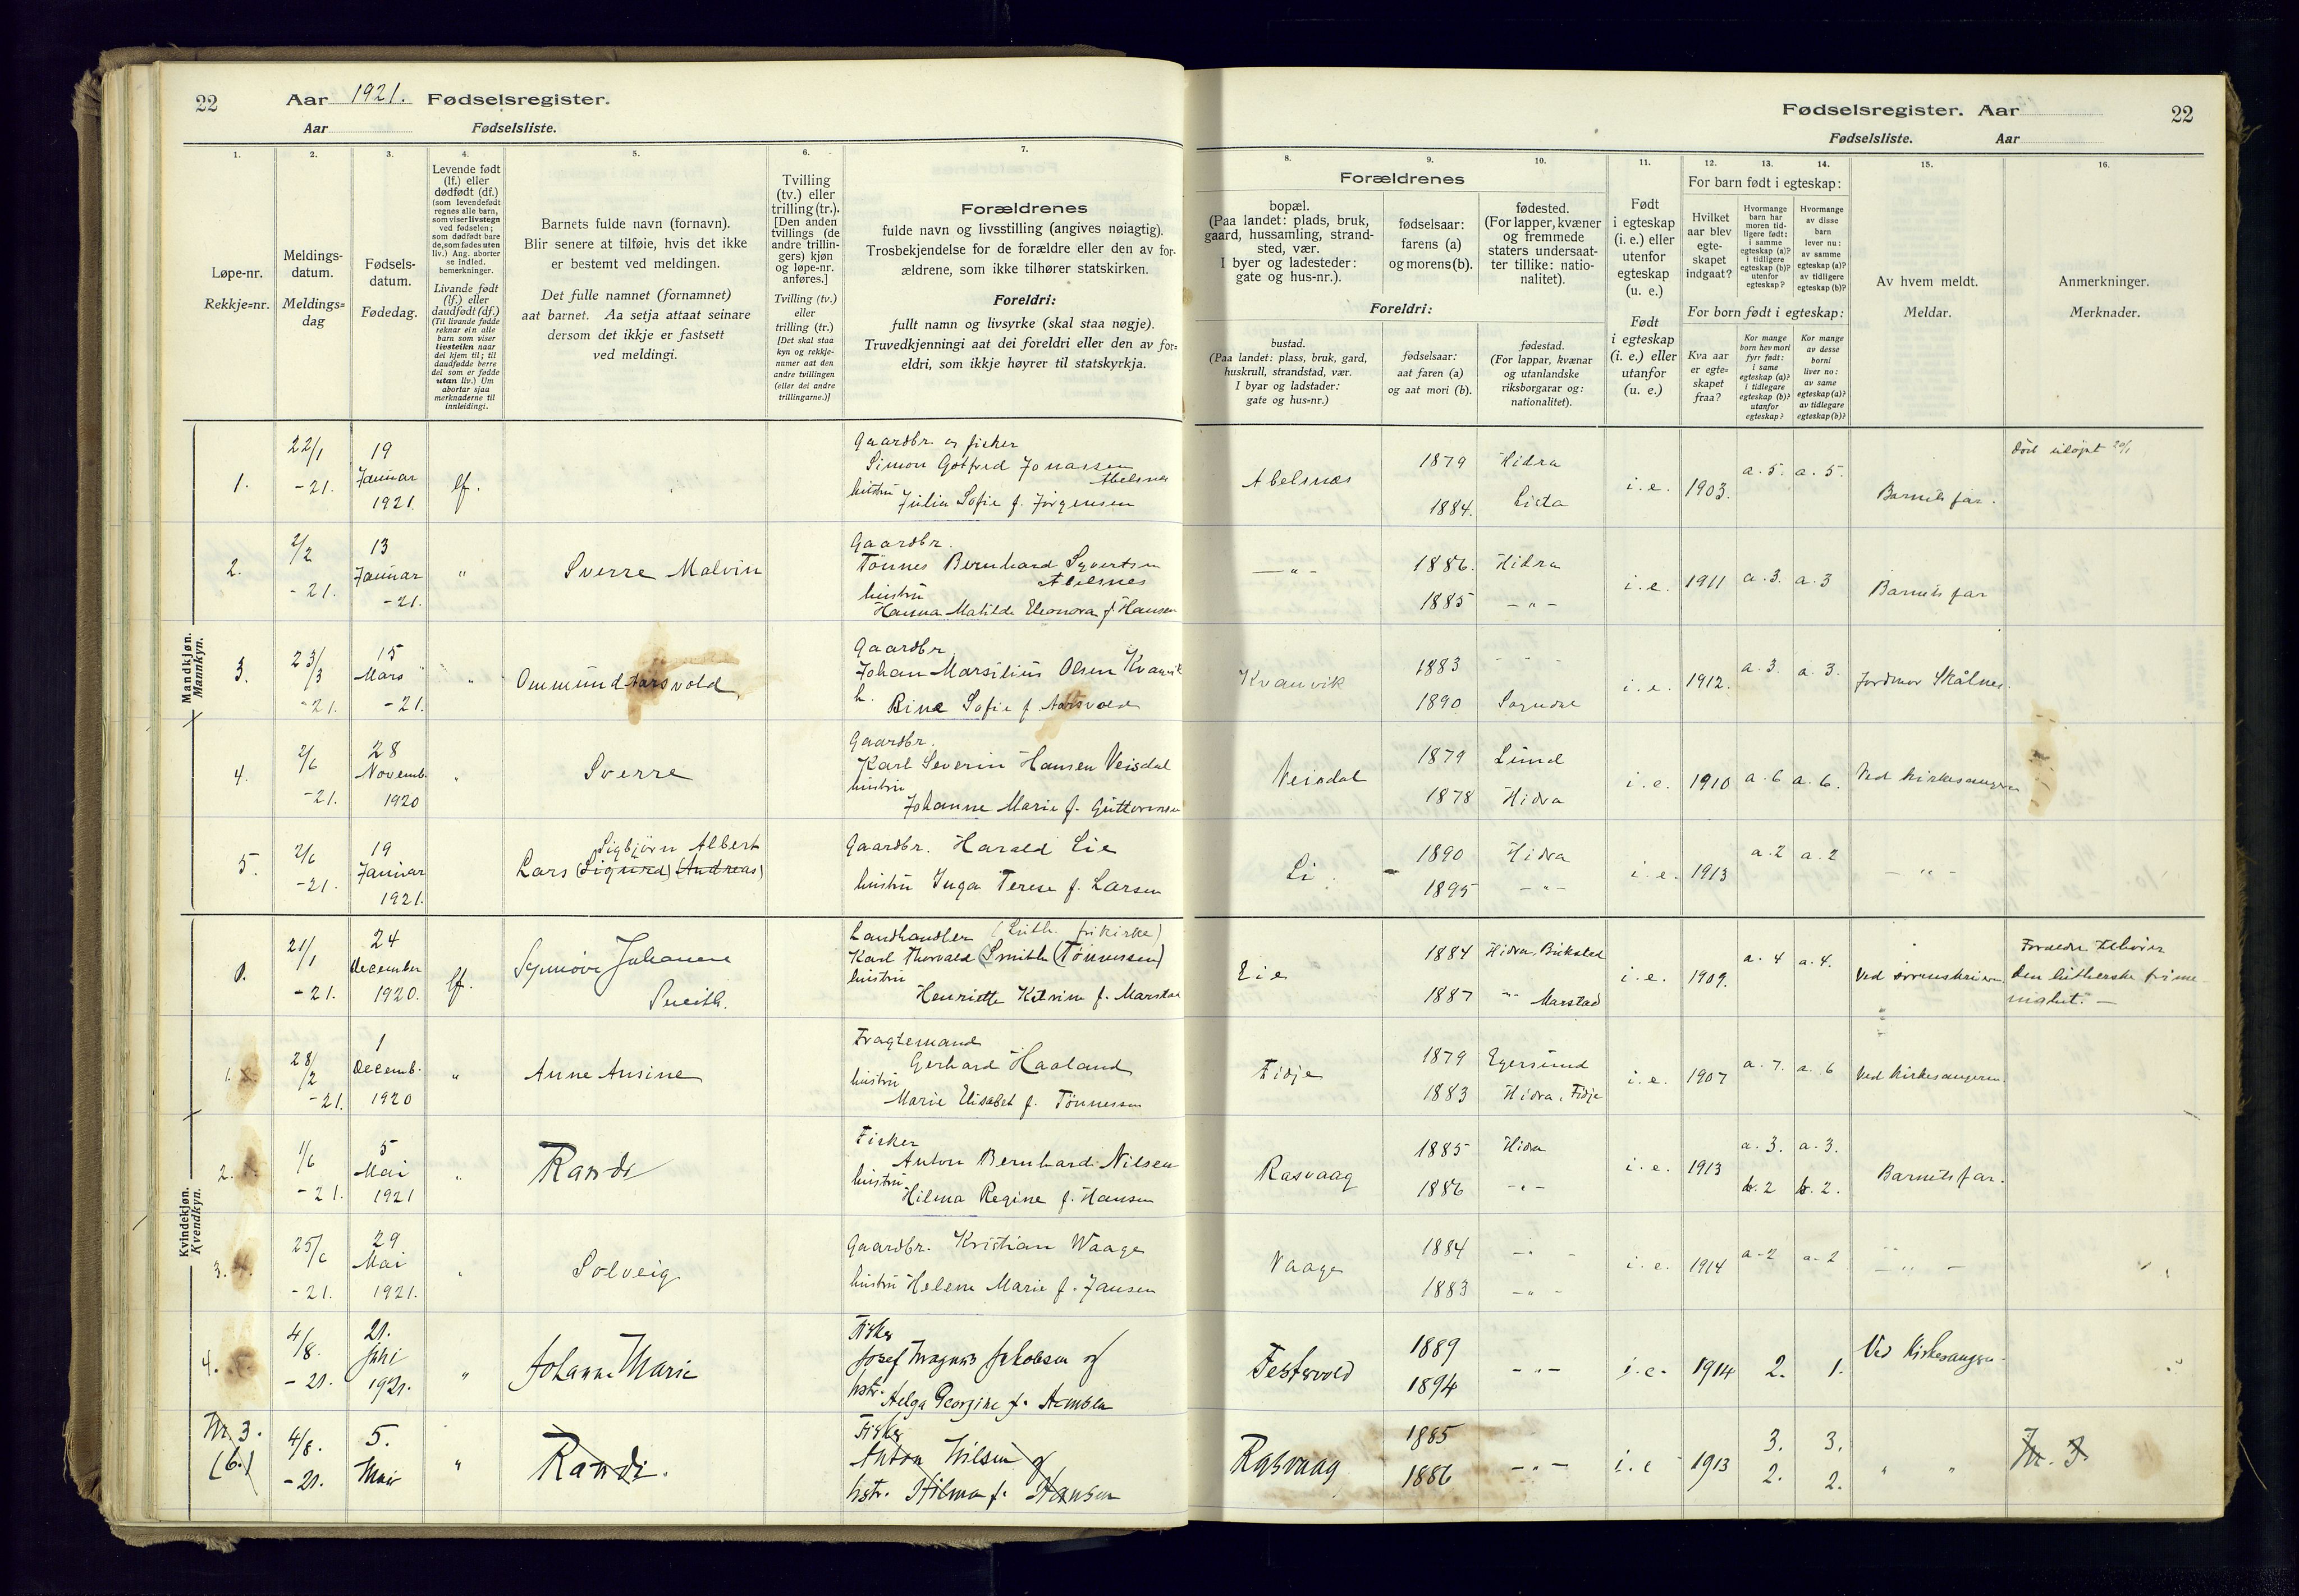 22 Aar 1921. Fødselsregister.
Aar Fødselsliste.
Fødselsregister. Aar 22
Fødselsliste. Aar
1. 2. 3. 4. 5. 6. 7.
Løpe-nr.
Rekkje=nr.
Meldings-
datum.
Meldings=
dag
Fødsels-
datum.
Fødedag.
Levende født
(lf.) eller
dødfødt (df.)
(som levendefødt
regnes alle barn,
som viser livstegn
ved fødselen;
som dødfødt bare
de, som fødes uten
liv.) Ang. aborter
se indled.
bemerkninger.
Livande født
(lf.) eller
daudfødt (df.)
(Til livande fødde
reknar ein alle
barn som viser
livsteikn naar
dei kjem til; til
daudfødde berre
dei som er fødde
utan liv.) Um
abortar sjaa
merknaderne til
innleidingi.
Barnets fulde navn (fornavn).
Blir senere at tilføie, hvis det ikke
er bestemt ved meldingen.
Det fulle namnet (fornamnet)
aat barnet. Aa setja attaat seinare
dersom det ikkje er fastsett
ved meldingi.
Tvilling
(tv.) eller
trilling (tr.).
[Den anden
tvillings (de
andre trillin-
gers) kjøn
og løpe-nr.
anføres.]
Tvilling (tv.)
eller
trilling (tr.)
[Det skal staa
kyn og rekkje-
numer aat den
andre tvillingen
(eller dei andre
trillingarne.)]
Forældrenes
fulde navn og livsstilling (angives nøiagtig).
Trosbekjendelse for de forældre eller den av for-
ældrene, som ikke tilhører statskirken.
Foreldri:
fullt namn og livsyrke (skal staa nøgje).
Truvedkjenningi aat dei foreldri eller den av for=
eldri, som ikkje høyrer til statskyrkja.
8. 9. 10. 11. 12. 13. 14. 15. 16.
Forældrenes
bopæl.
(Paa landet: plads, bruk,
gaard, hussamling, strand-
sted, vær.
I byer og ladesteder:
gate og hus-nr.).
fødselsaar:
farens (a)
og morens (b).
fødested.
(For lapper, kvæner
og fremmede
staters undersaat-
ter tillike: natio-
nalitet).
Foreldri:
bustad.
(Paa landet: plass, bruk, gard,
huskrull, strandstad, vær.
I byar og ladstader:
gate og hus-nr.)
fødselsaar:
aat faren (a)
og aat mori (b).
fødestad.
(For lappar, kvænar
og utanlandske
riksborgarar og:
nationalitet).
Født
i egteskap
(i. e.) eller
utenfor
egteskap
(u. e.)
Født
i egteskap
(i. e.) eller
utanfor
(u. e.)
For barn født i egteskap:
Hvilket
aar blev
egte-
skapet
indgaat?
Hvormange
barn har
moren tid-
ligere født:
i samme
egteskap (a)?
i tidligere
egteskap (b)?
utenfor
egteskap?
Hvormange
av disse
barn
lever nu:
av samme
egteskap (a)?
av tidligere
egteskap (b)?
For born født i egteskap:
Kva aar
er egte=
skapet
fraa?
Kor mange
born hev mori
fyrr født:
i same
egteskap (a)?
i tidlegare
egteskap (b)?
utanfor
egteskap?
Kor mange
av desse
borni
liver no:
av same
egteskap (a)?
av tidlegare
egteskap (b)?
Av hvem meldt.
Meldar.
Anmerkninger.
Merknader.
Mandkjøn.
Mannkyn.
1. 22/1 -21. 19 Januar 1921. lf.
Gaardbr. og fisker
Simon Gotfred Jonassen
Abelsnes
hustru
Julia Sofie f. Jörgensen
Abelsnæs 1879 Hidra
1884. Lista
i. e. 1903. a. 5. a. 5. Barnets far.
2. 2/2 -21. 13 Januar -21. " Sverre Malvin
Gaardbr.
Tönnes Bernhard Syvertsen
Abelsnes
hustru
Hanna Matilde Eleonora f. Hansen
— " — 1886. Hidra
1885 — " —
i. e. 1911 a. 3. a. 3 Barnets far
3. 23/3 -21. 15 Mars -21. " Ommund Aarsvold
Gaardbr.
Johan Marsilius Olsen Kvanvik
h. Rine Sofie f. Aarsvold
Kvanvik 1883 - " -
1890 Sogndal
i. e. 1912. a. 3. a. 3. Jordmor Skålnes.
4. 2/6 -21. 28 Novemb. 1920 " Sverre
Gaardbr.
Karl Severin Hansen Veisdal
hustru
Johanne Marie f. Guttormsen
Veisdal 1879 Lund
1878 Hidra
i. e. 1910 a. 6 a. 6. Ved kirkesangeren
5. 2/6 -21. 19 Januar 1921.
Sigbjörn Albert
Lars (Sigurd) (Andreas)
Gaardbr. Harald Lie
hustru Inga Terese f. Larsen
Li. 1890 Hidra
1895 — " —
i. e. 1913 a. 2 a. 2 — " —
Kvindekjøn.
Kvendkyn.
0. 21/1 -21. 24 December 1920. lf. Synnöve Johanne
Smith.
Landhandler (Luth. frikirke)
Karl Thorvald Smith (Tönnessen)
hustru
Henriette Katrine f. Marstad
Eie 1884 Hidra, Buksted
1887 " Marstad
i. e. 1909. a. 4 a. 4. Ved sorenskriver.
Foraeldre tilhörer
den lutherske frime-
nighet. —
1. 28/2 -21. 1 Decemb. 1920 " Anne Ansine
Fragtemand
Gerhard Haaland
hustru
Marie Elisabet f. Tönnessen
Fidje 1879 Egersund
1883 Hidra, Fidje
i. e. 1907 a. 7. a. 6 Ved kirkesangeren.
2. 1/6 -21. 5 Mai 1921 " Randi
Fisker
Anton Bernhard Nilsen
hustru
Hilma Regine f. Hansen
Rasvaag 1885 Hidra
1886 — " —
i. e. 1913 a. 3. a. 3.
b. 2 b. 2. Barnets far.
3. 25/6 -21. 29 Mai 1921. " Solveig
Gaardbr. Kristian Waage
hustru Helene Marie f. Jansen
Vaage 1884 — " —
1883 — " —
i. e. 1914 a-2 a-2 — " —
4. 4/8. -21. 21. Juni 1921. " Johanne Marie
Fisker
Josef Magnus Jakobsen og
hstr. Helga Georgine f.
Festervold 1889
1894 — " —
i. e. 1914 2. 1. Ved Kirkesanger.
Nr. 3.
(6.) 4/8. -21. 5. Mai " Randi.
Fisker
Anton Nilsen og
hstr. Hilma f. Hansen
Rasvaag 1885
1886 — " —
i. e 1913 3. 3.
2. 2. " " Nr. 3